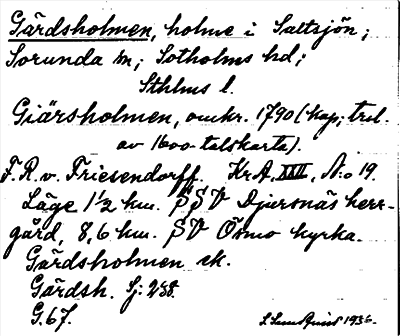 Gårdsholmen, holme i Saltsjön;
Sorunda sn; Sotholms hd;
Sthlms l.
Giärsholmen, omkr. 1790 (kop; trol.
av 1600-talskarta).
F. R. v. Friesendorff. Kr A, XIII, N:o 19.
Läge 1 1/2 km. SSV Djursnäs herr-
gård, 8,6 km. SV Ösmo kyrka.
Gårdsholmen ek.
Gårdsh. Sj: 288.
G. 67.
1936.